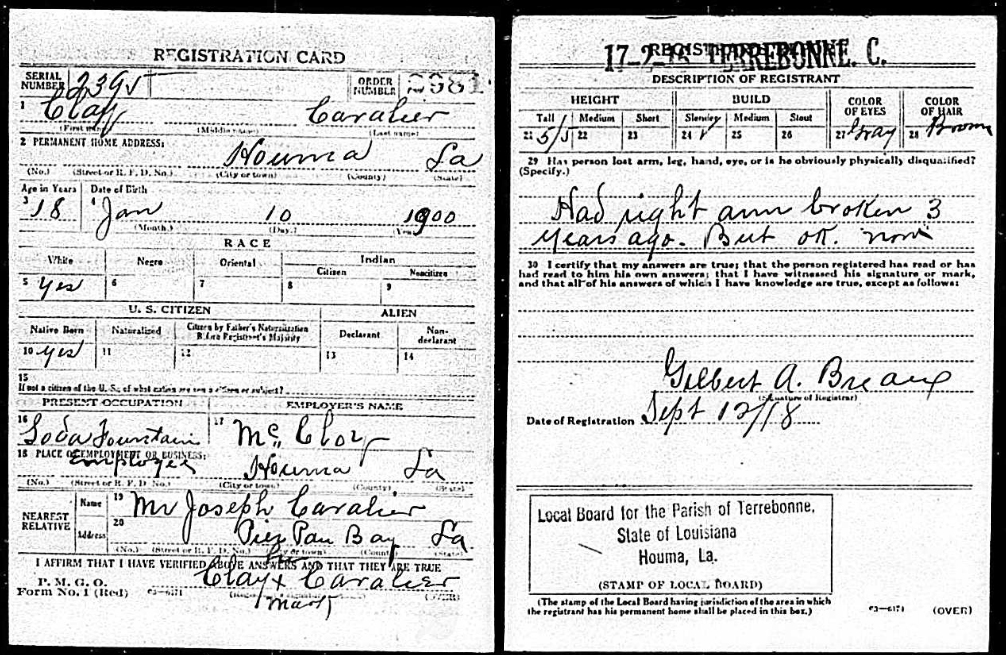 REGISTRATION CARD
SERIAL NUMBER 2395 ORDER NUMBER 2981
1 Clay Cavalier
(First name) (Middle name) (Last name)
2 PERMANENT HOME ADDRESS:
Houma La
(No.) (Street or R. F. D. No.) (City or town) (County) (State)
Age in Years Date of Birth
3 18 4 Jan 10 1900
(Month.) (Day.) (Year)
RACE
White Negro Oriental Indian
Citizen Noncitizen
5 Yes 6 7 8 9
U. S. CITIZEN ALIEN
Native Born Naturalized Citizen by Father's Naturalization Before Registrant's Majority Declarant Non-declarant
10 Yes 11 12 13 14
15
If not a citizen of the U. S., of what nation are you a citizen or subject?
PRESENT OCCUPATION EMPLOYER'S NAME
16 Soda Fountain 17 Mc Cloy
Employee
18 PLACE OF EMPLOYMENT OR BUSINESS:
Houma La
(No.) (Street or R. F. D. No.) (City or town) (County) (State)
NEAREST RELATIVE Name 19 Mr Joseph Cavalier
Address 20 Bay La
(No.) (Street or R. F. D. No.) (City or town) (County) (State)
I AFFIRM THAT I HAVE VERIFIED ABOVE ANSWERS AND THAT THEY ARE TRUE
P. M. G. O.
Form No. 1 (Red) 03—6171
his
Clay x Cavalier
mark
17-2-25 TERREBONNE. C.
DESCRIPTION OF REGISTRANT
HEIGHT BUILD COLOR OF EYES COLOR OF HAIR
Tall Medium Short Slender Medium Stout
21 22 23 24 ✓ 25 26 27 Gray 28 Brown
29 Has person lost arm, leg, hand, eye, or is he obviously physically disqualified?
(Specify.)
Had right arm broken 3
years ago. But ok. now
30 I certify that my answers are true; that the person registered has read or has
had read to him his own answers; that I have witnessed his signature or mark,
and that all of his answers of which I have knowledge are true, except as follows:
Gilbert A. Breaux
(Signature of Registrar)
Date of Registration Sept 12/18
Local Board for the Parish of Terrebonne,
State of Louisiana
Houma, La.
(STAMP OF LOCAL BOARD)
(The stamp of the Local Board having jurisdiction of the area in which
the registrant has his permanent home shall be placed in this box.)
03—6171 (OVER)